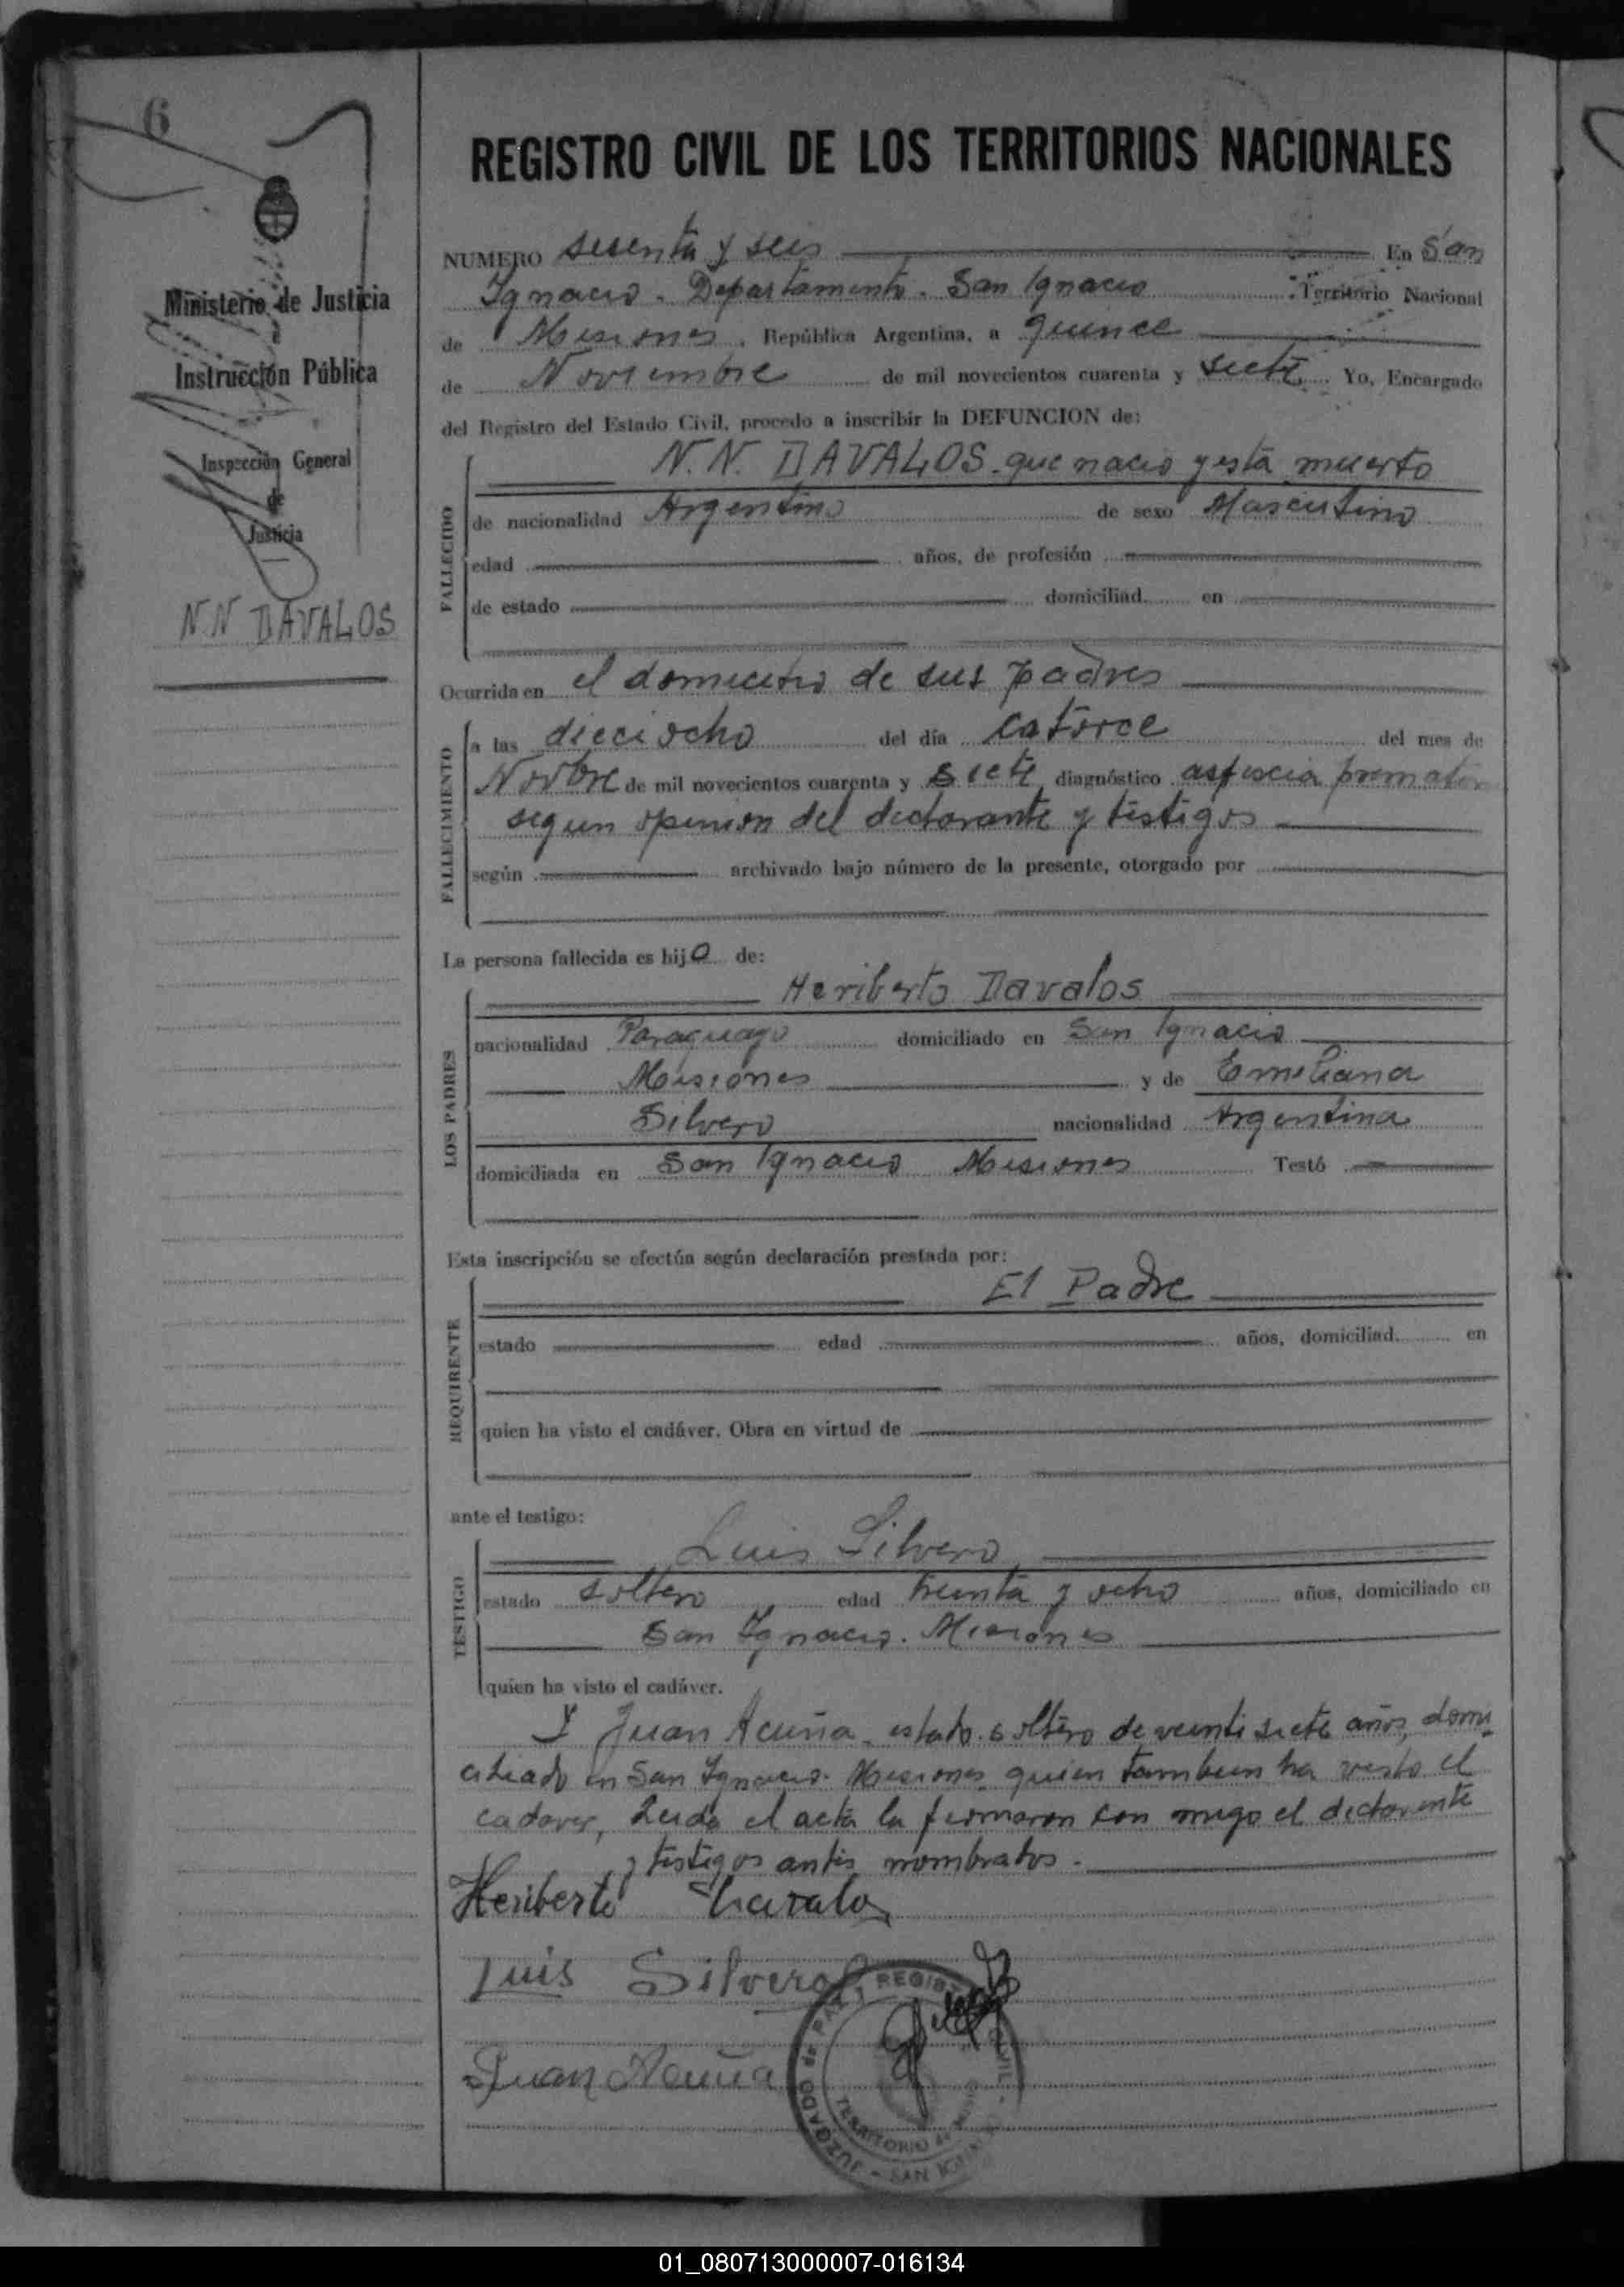 6
REGISTRO CIVIL DE LOS TERRITORIOS NACIONALES
Ministerio de Justicia
Instrucción Pública
Inspección General
de
Justicia
N.N DAVALOS
NUMERO sesenta y seis En San
Ignacio. Departamento. San Ignacio Territorio Nacional
de Misiones, República Argentina, a quince
de Noviembre de mil novecientos cuarenta y siete Yo, Encargado
del Registro del Estado Civil, procedo a inscribir la DEFUNCION de:
N.N. DAVALOS. que nacio y esta muerto
FALLECIDO
de nacionalidad Argentino de sexo Masculino
edad años, de profesión
de estado domiciliad en
Ocurrida en el domicilio de sus padres
FALLECIMIENTO
a las dieciocho del día catorce del mes de
Novbre de mil novecientos cuarenta y siete diagnóstico asfixcia
segun opinion del declarante y testigos
según archivado bajo número de la presente, otorgado por
La persona fallecida es hijo de:
LOS PADRES
Heriberto Davalos
nacionalidad Paraguayo domiciliado en San Ignacio
Misiones y de Emiliana
Silvero nacionalidad Argentina
domiciliada en San Ignacio Misiones Testó
Esta inscripción se efectúa según declaración prestada por:
REQUIRENTE
El Padre
estado edad años, domiciliad en
quien ha visto el cadáver. Obra en virtud de
ante el testigo:
TESTIGO
Luis Silvero
estado soltero edad treinta y ocho años, domiciliado en
San Ignacio. Misiones
quien ha visto el cadáver.
Y Juan Acuña. estado soltero de veinti siete años, domi
ciliado en San Ignacio. Misiones quien tambien ha visto el
cadaver, Leida el acta la firmaron con migo el declarante
y testigos antes nombrados.
Heriberto Davalos
Luis Silvero
Juan Acuña
JUZGADO de PAZ y REGISTRO CIVIL
TERRITORIO de
SAN IGNACIO
01_080713000007-016134